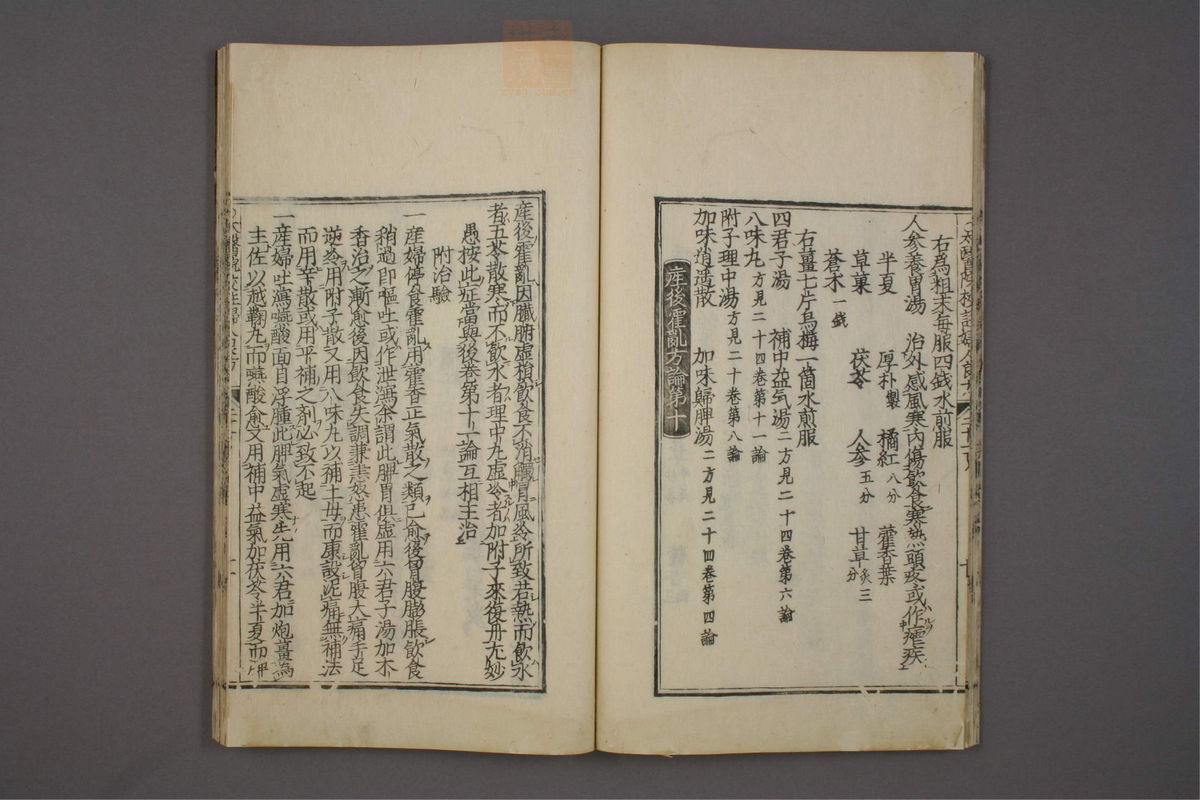 右爲粗末每服四錢水煎服
人参養胃湯 治外感風寒内傷飲食寒熱頭疼或作瘧疾
半夏 厚朴製 橘紅八分 藿香葉
草菓 茯苓 人参五分 甘草炙三分
蒼术一錢
右薑七片烏梅一箇水煎服
四君子湯 補中益気湯二方見二十四卷第六論
八味丸方見二十四卷第十一論
附子理中湯方見二十卷第八論
加味逍遥散 加味歸脾湯二方見二十四卷第四論
産後霍亂方論第十
産後霍亂因臓腑虚損飲食不消觸冒風冷所致若熱而飲水
者五苓散寒而不飲水者理中丸虚冷者加附子來復丹尤妙
愚按此症當與後卷第十一論互相主治
附治驗
一産婦停食霍亂用藿香正氣散之類已愈後胃腹膨脹飲食
稍過即嘔吐或作泄瀉余謂此脾胃俱虚用六君子湯加木
香治之漸愈後因飲食失調兼恚怒患霍亂胃腹大痛手足
逆冷用附子散又用八味丸以補土母而康設泥痛無補法
而用辛散或用平補之剤必致不起
一産婦吐瀉嚥酸面目浮腫此脾氣虚寒先用六君加炮薑爲
主佐以越鞠丸而嚥酸愈又用補中益氣加茯苓半夏而脾